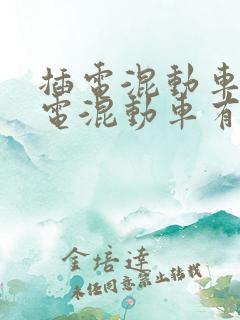 插電混動車
電混動車有
金培達
未经同意禁止转载